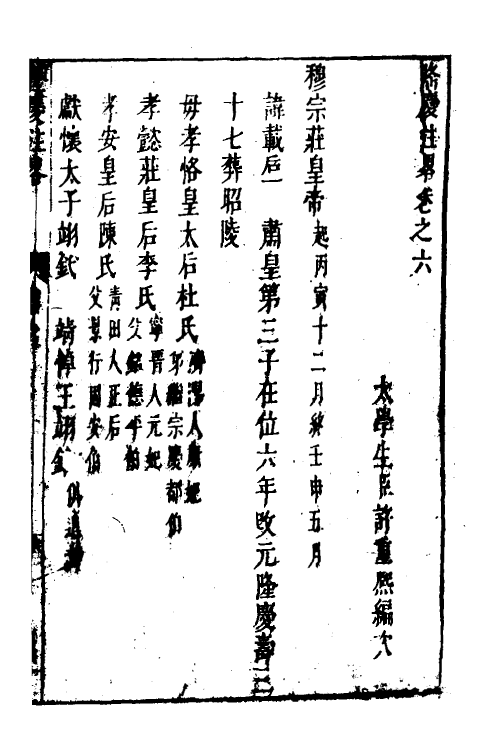 隆慶注畧卷之六
太學生臣許重熙編次
穆宗莊皇帝起丙寅十二月終壬申五月
諱載垕 肅皇第三子在位六年改元隆慶壽三
十七葬昭陵
母孝恪皇太后杜氏
孝懿莊皇后李氏寧晋人元妃父銘德平伯
孝安皇后陳氏青田人正后父景行固安伯
獻懷太子翊釴 靖悼王翊